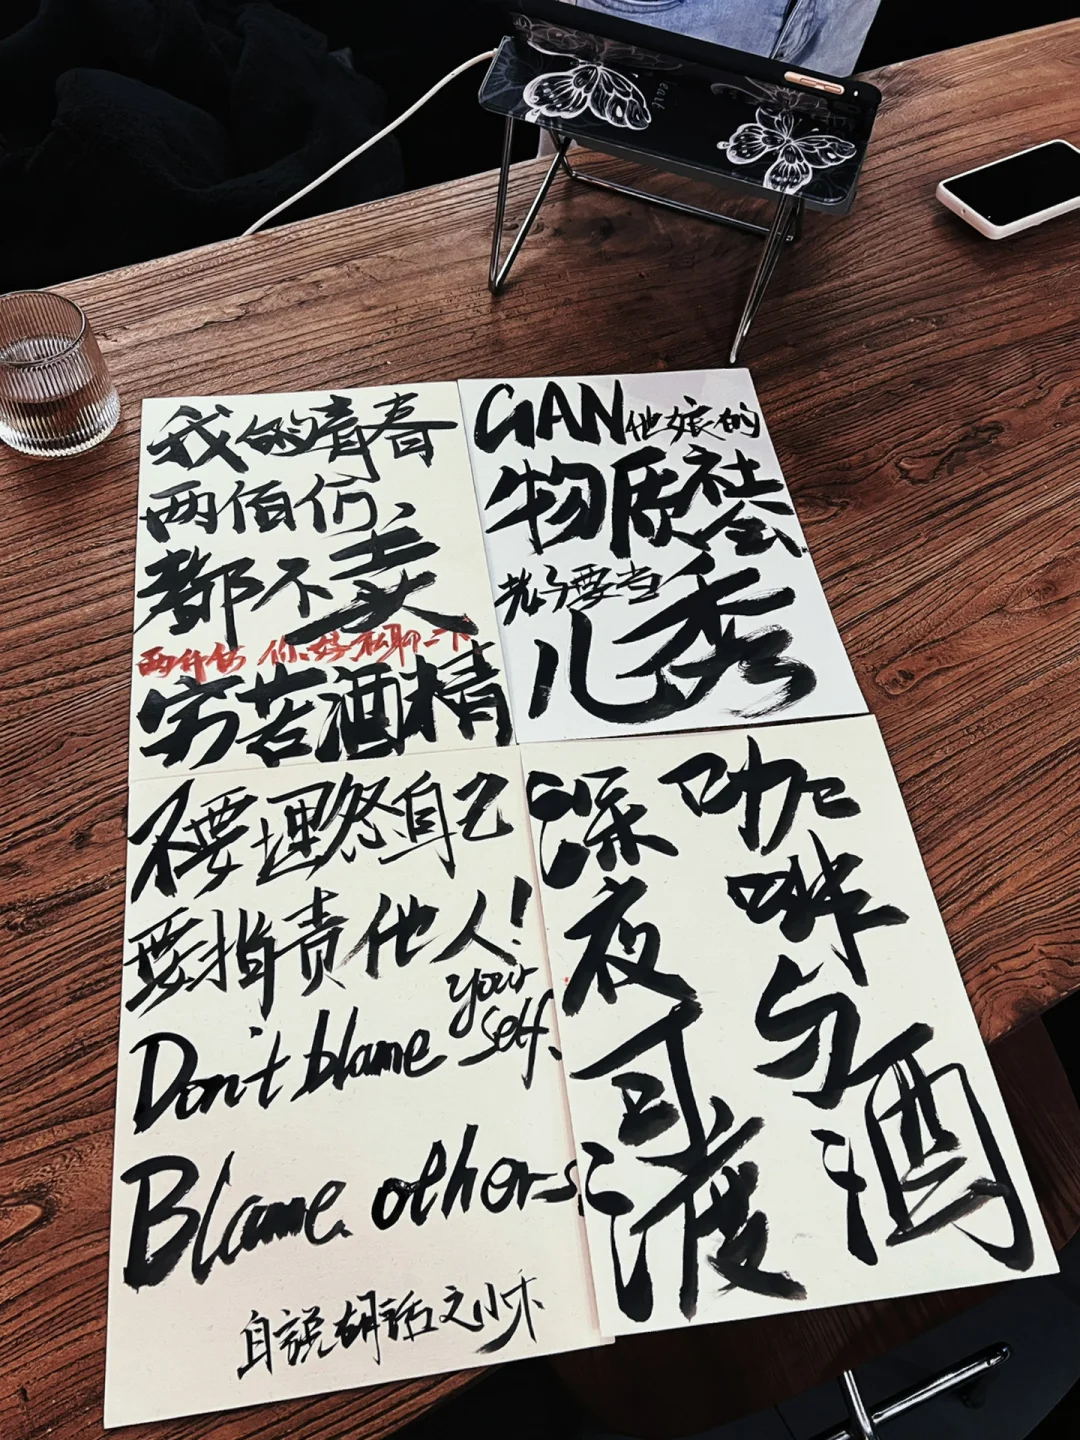 我的青春
两佰斤
都不卖
两仟伍 你好私聊一下
穷苦酒精
GAN他娘的
物质社会
老子要当
儿秀
不要埋怨自己
要指责他人!
Don't blame your self.
Blame others.
自说胡话之小木
咖啡与酒
深夜可渡